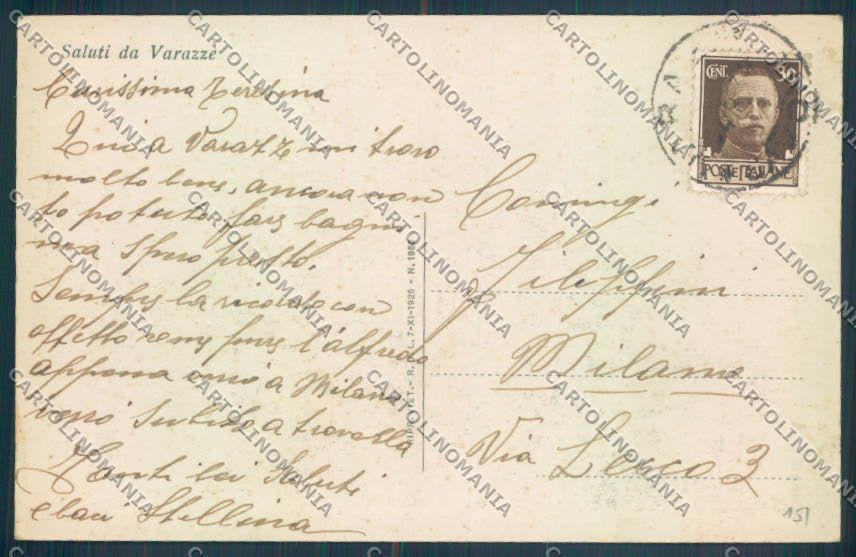 Saluti da Varazze
Carissima Teresina
Qui a Varazze mi trovo
molto bene, ancora non
ho potuto fare bagni
ma spero presto.
Sempre la ricordo con
affetto
pure l'Alfredo
appena a Milano
verrò subito a trovarla
Tanti cari saluti
e baci Stellina
CENT. 30
POSTE ITALIANE
Coniugi
Filippini
Milano
Via Lecco 3
RIPR. INT. - R. D. L. 7-XI-1925 - N. 1950
151
CARTOLINOMANIA